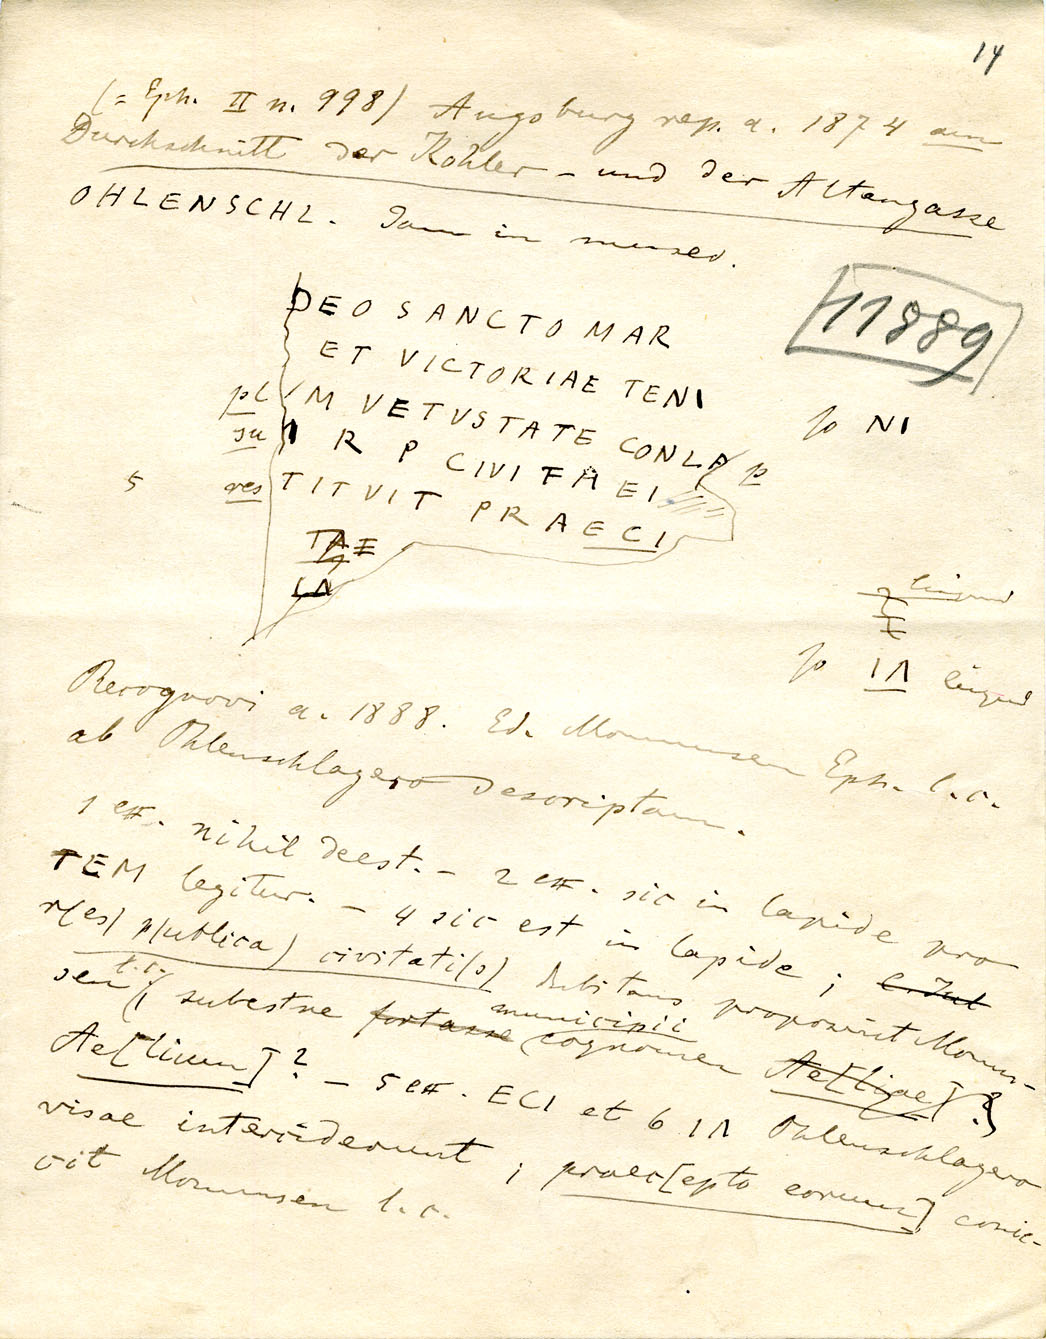 14
(= Eph. II n. 998) Augsburg rep. a. 1874 am
Durchschnitt der Kohler- und der Altangasse
OHLENSCHL. Jam in museo.
11889
DEO SANCTO MAR
ET VICTORIAE TENI
NI
pl M VETVSTATE CONLA p
su I R P CIVITA EI
5 res TITVIT PRAECI
TAE
IΛ
lingua
IΛ
Recognovi a. 1888. Ed. Mommsen Eph. l.c.
ab Ohlenschlagero descriptam.
1 ext. nihil deest. - 2 ext. sic in lapide pro
TEM legitur. - 4 sic est in lapide;
r(es) p(ublica) civitati(s) dubitans proposuit Momm-
sen l.c. (subestne fortasse municipii cognomen Ae[liae]?
Ae[lium]? - 5 ext. ECI et 6 IΛ Ohlenschlagero
visae interciderunt; praec[epto eorum] conie-
cit Mommsen l.c.